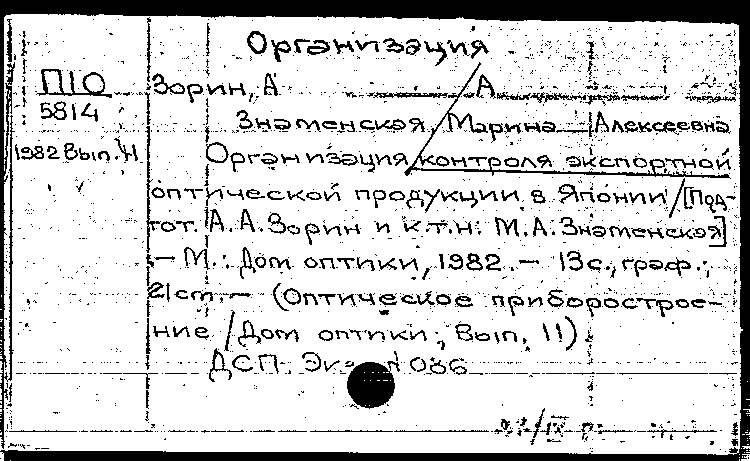 Организация
П10 Зорин, А А
5814
Знаменская, Марина Алексеевна
1982 Вып. 11 Организация контроля экспортной
оптической продукции в Японии / [Под-
гот. А.А. Зорин и к.т.н. М.А. Знаменская]
.– М.: Дом оптики, 1982.– 13 с., граф.;
21 см.– (Оптическое приборострое-
ние / Дом оптики; Вып. 11).
ДСП. Экз. 086